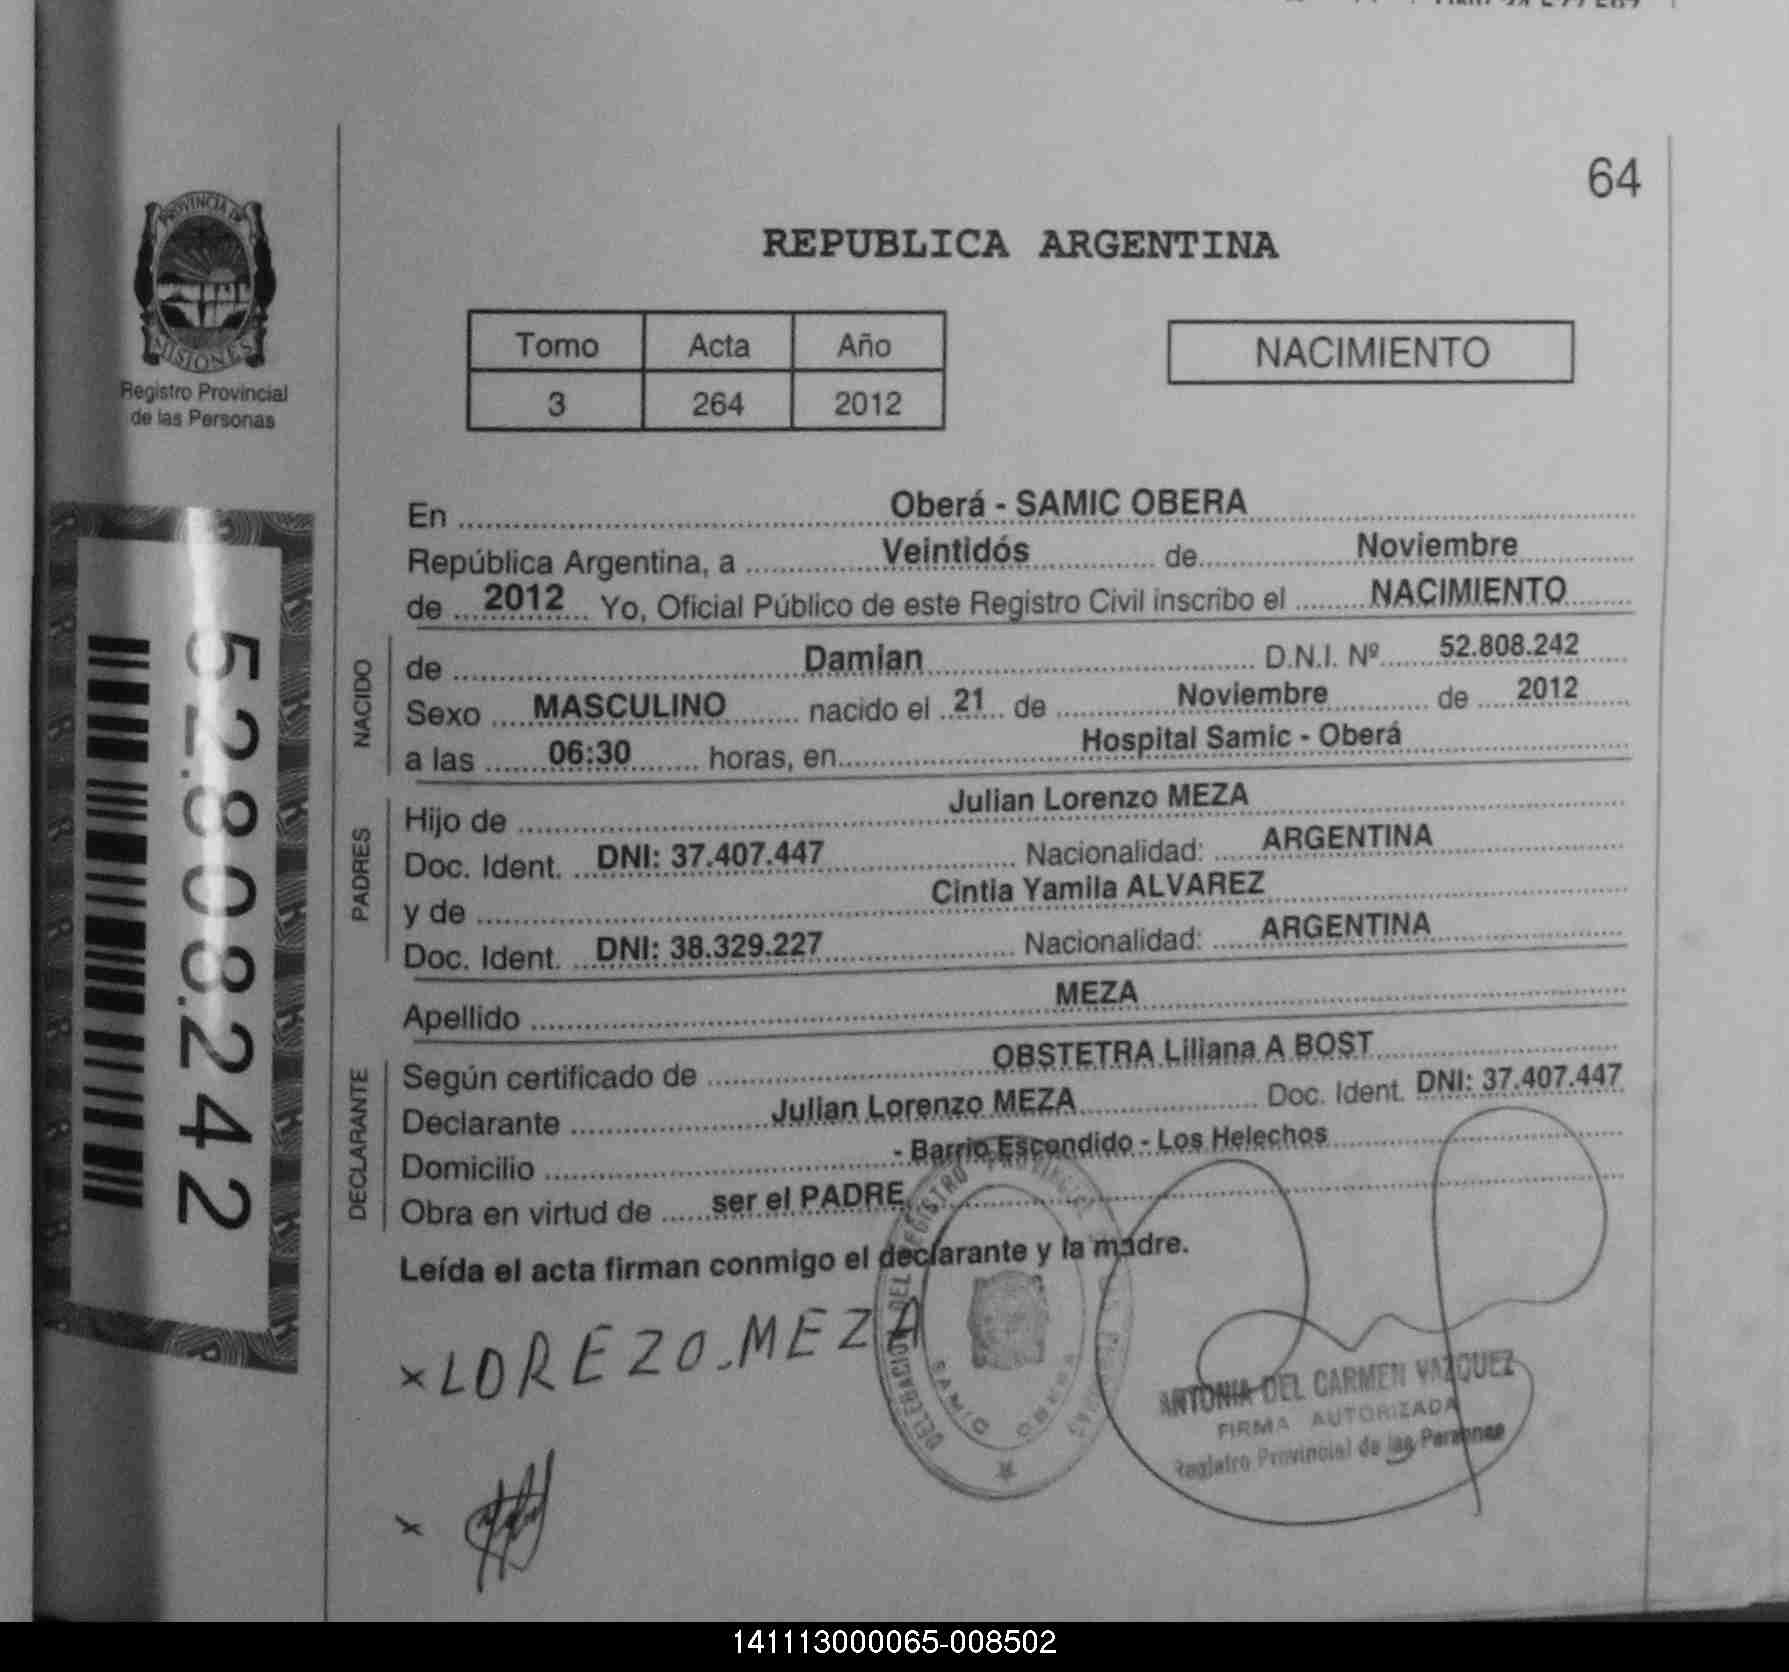 64
PROVINCIA DE
MISIONES
Registro Provincial
de las Personas
REPUBLICA ARGENTINA
Tomo Acta Año
3 264 2012
NACIMIENTO
52.808.242
En Oberá - SAMIC OBERA
República Argentina, a Veintidós de Noviembre
de 2012 Yo, Oficial Público de este Registro Civil inscribo el NACIMIENTO
NACIDO
de Damian D.N.I. Nº 52.808.242
Sexo MASCULINO nacido el 21 de Noviembre de 2012
a las 06:30 horas, en Hospital Samic - Oberá
PADRES
Hijo de Julian Lorenzo MEZA
Doc. Ident. DNI: 37.407.447 Nacionalidad: ARGENTINA
y de Cintia Yamila ALVAREZ
Doc. Ident. DNI: 38.329.227 Nacionalidad: ARGENTINA
Apellido MEZA
DECLARANTE
Según certificado de OBSTETRA Liliana A BOST
Declarante Julian Lorenzo MEZA Doc. Ident. DNI: 37.407.447
Domicilio - Barrio Escondido - Los Helechos
Obra en virtud de ser el PADRE
Leída el acta firman conmigo el declarante y la madre.
x LOREZO.MEZA
DELEGACION DEL REGISTRO PROVINCIAL
SAMIC OBERA
ANTONIA DEL CARMEN VAZQUEZ
FIRMA AUTORIZADA
Registro Provincial de las Personas
x
141113000065-008502